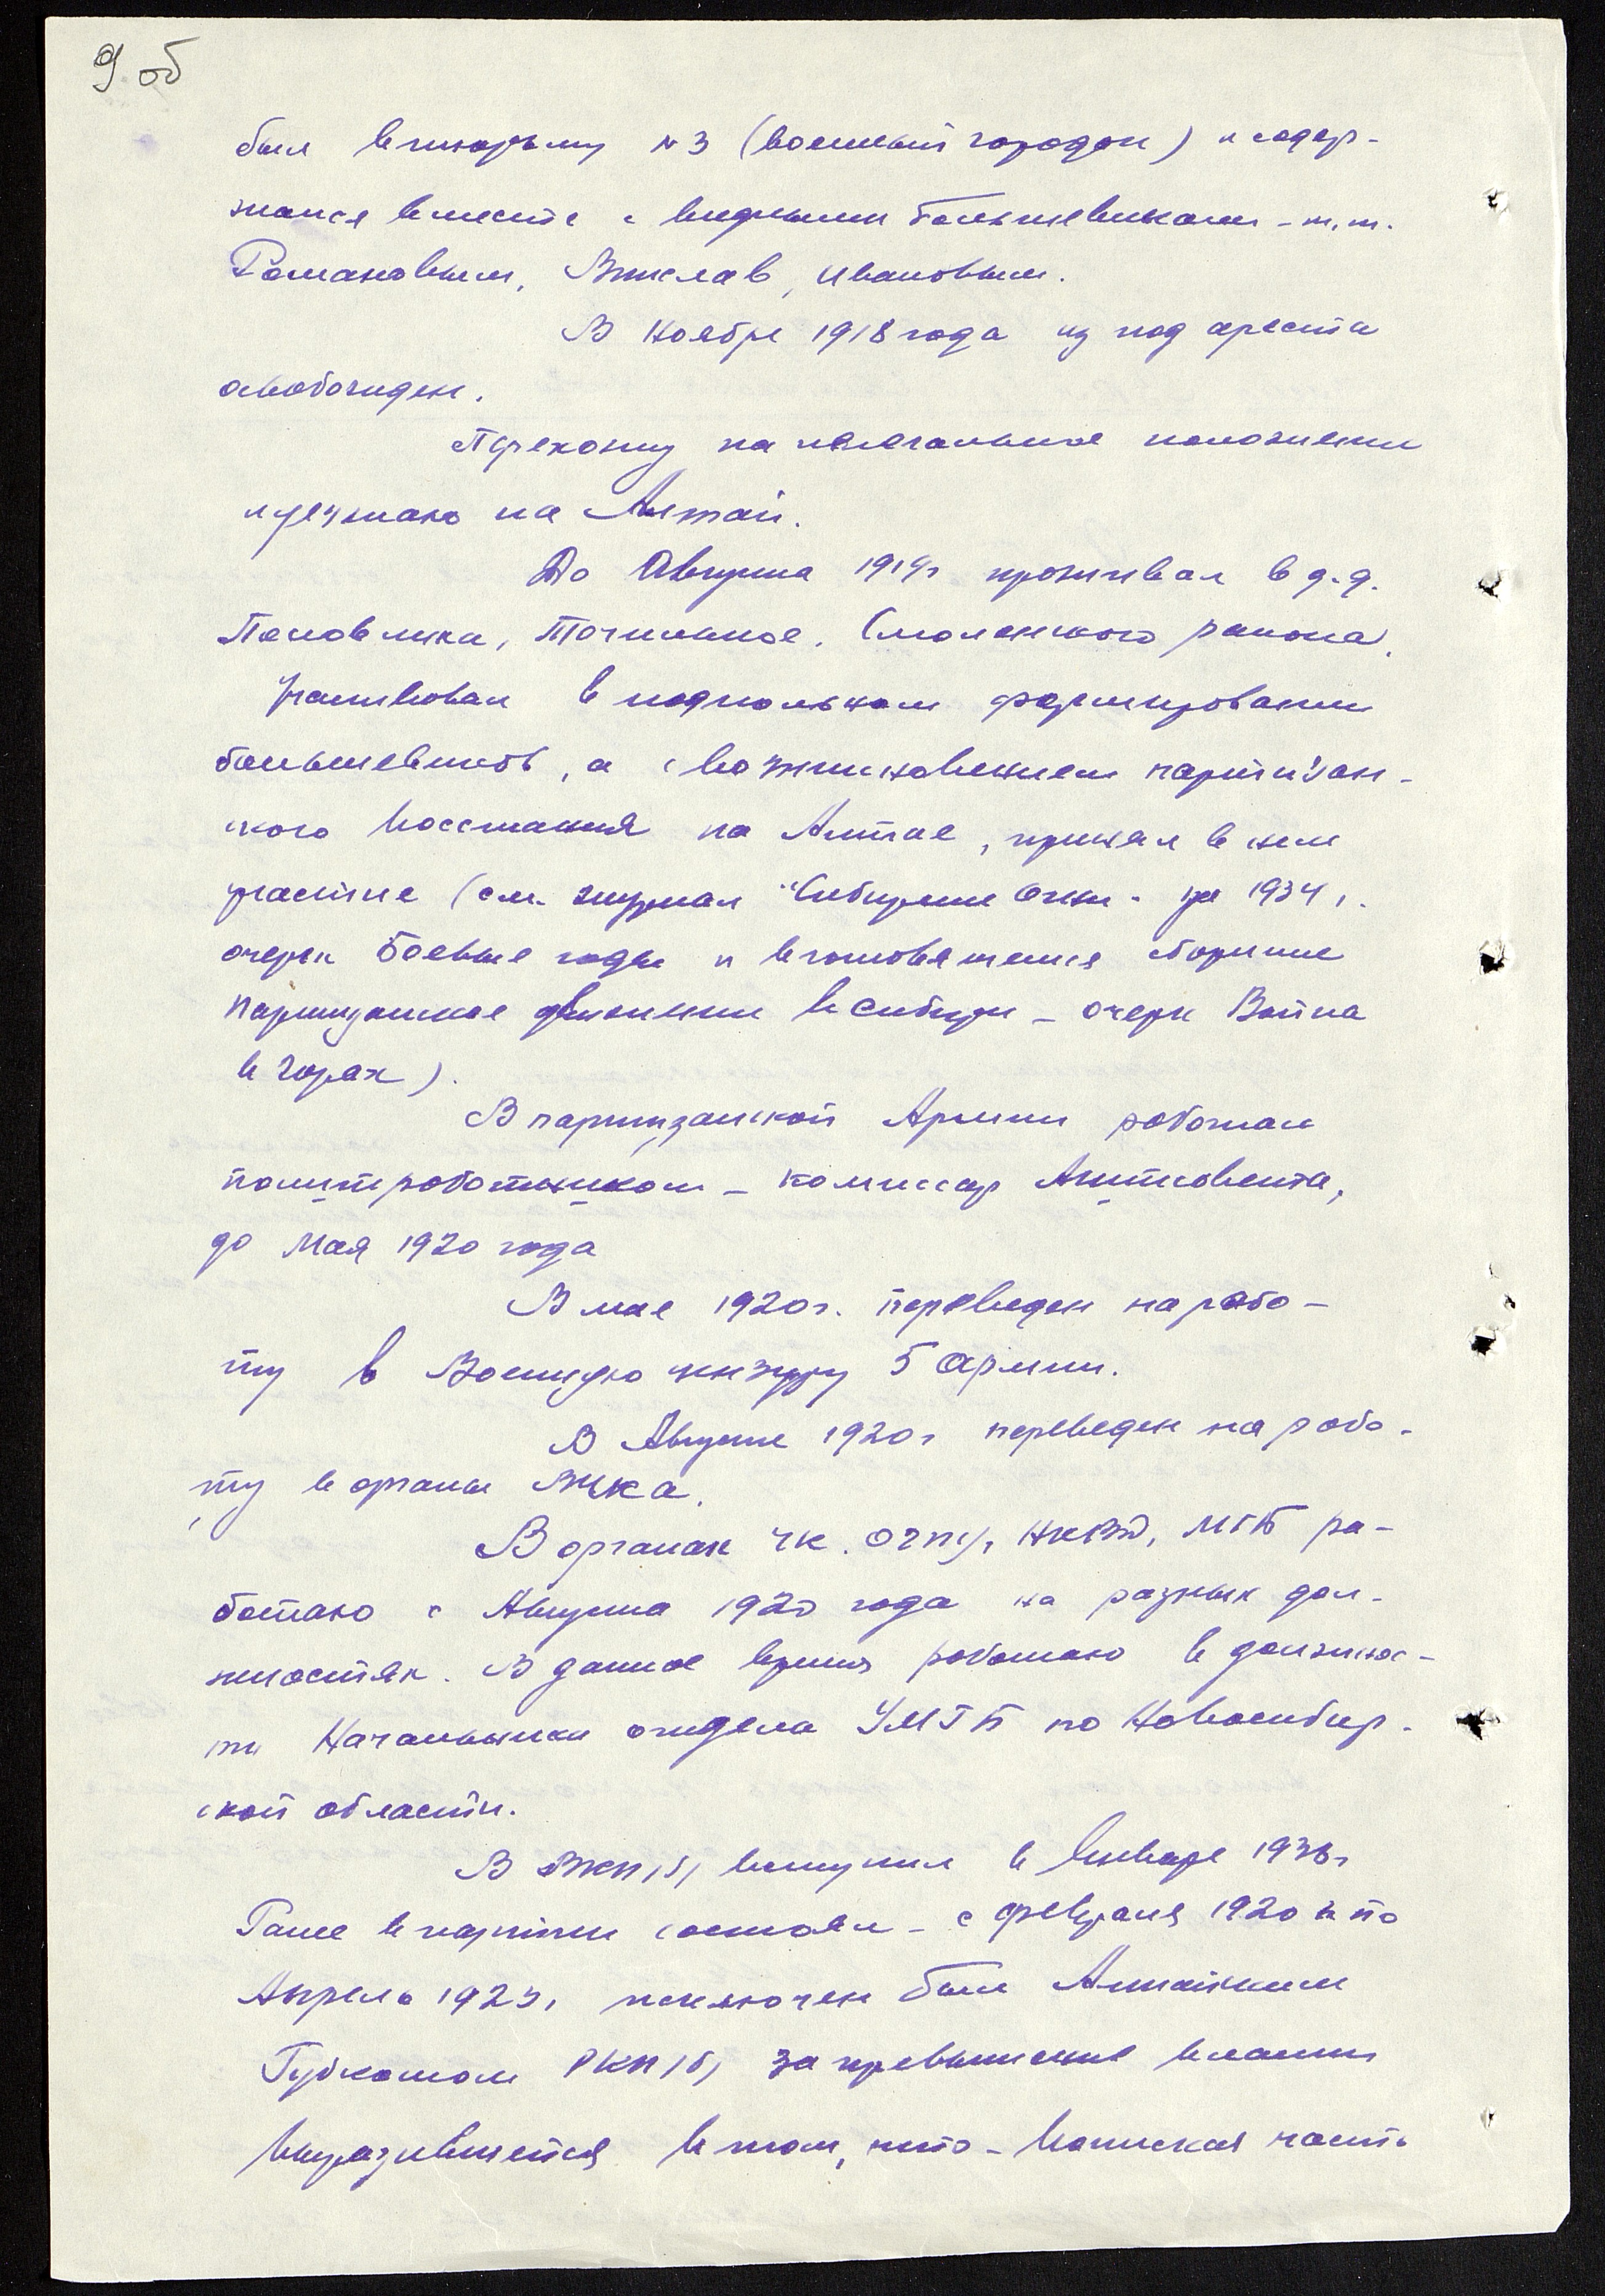 9 об
был в тюрьму № 3 (военный городок) и содер-
жался вместе с видными большевиками - т.т.
Романовым, Вислав, Ивановым.
В Ноябре 1918 года из под ареста
освобожден.
Перехожу на нелегальное положение
и уезжаю на Алтай.
До Августа 1919г проживал в д.д.
Точильное, Смоленского района.
Участвовал в подпольном формировании
большевиков, а с возникновением партизан-
ского восстания на Алтае, принял в нем
участие (см. журнал "Сибирские Огни" за 1934 г.
очерк Боевые годы и в готовящемся сборнике
Партизанское движение в Сибири - очерк Война
в Горах).
В партизанской Армии работал
политработником - комиссар
до Мая 1920 года
В мае 1920г. переведен на рабо-
ту в Военную цензуру 5 Армии.
В Августе 1920г переведен на рабо-
ту в органы ВЧКа.
В органах ЧК, ОГПУ, НКВД, МГБ ра-
ботаю с Августа 1920 года на разных дол-
жностях. В данное время работаю в должнос-
ти Начальника отдела УМГБ по Новосибир-
ской области.
В ВКП/б/ вступил в Январе
Ранее в партии состоял - с февраля 1920 г. по
Апрель исключен был Алтайским
Губкомом РКП/б/ за превышение власти
выразившейся в том, что - воинская часть